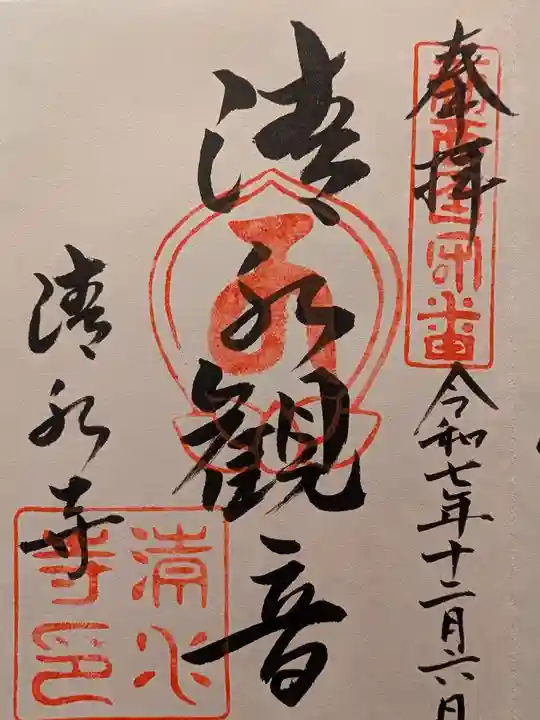 奉拝
令和七年十二月六日
清水観音
清水寺
清水
寺印